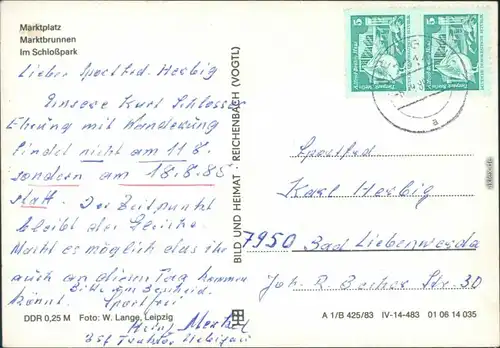 Marktplatz
Marktbrunnen
Im Schloßpark
Lieber Sportfrd. Herbig
Unsere Kurt Schlosser
Ehrung mit Wanderung
findet nicht am 11.8.
sondern am 18.8.85
statt. Der Zeitpunkt
bleibt der Gleiche.
Macht es möglich das ihr
auch an diesem Tag kommen
könnt. Bitte um Bescheid.
Sportfrei
Heinz
BSG Traktor Uebigau
DDR 0,25 M Foto: W. Lange, Leipzig
BILD UND HEIMAT - REICHENBACH (VOGTL)
5 5
a
Sportfrd
Karl Herbig
7950 Bad Liebenwerda
Joh. R. Becher Str. 30
A 1/B 425/83 IV-14-483 01 06 14 035